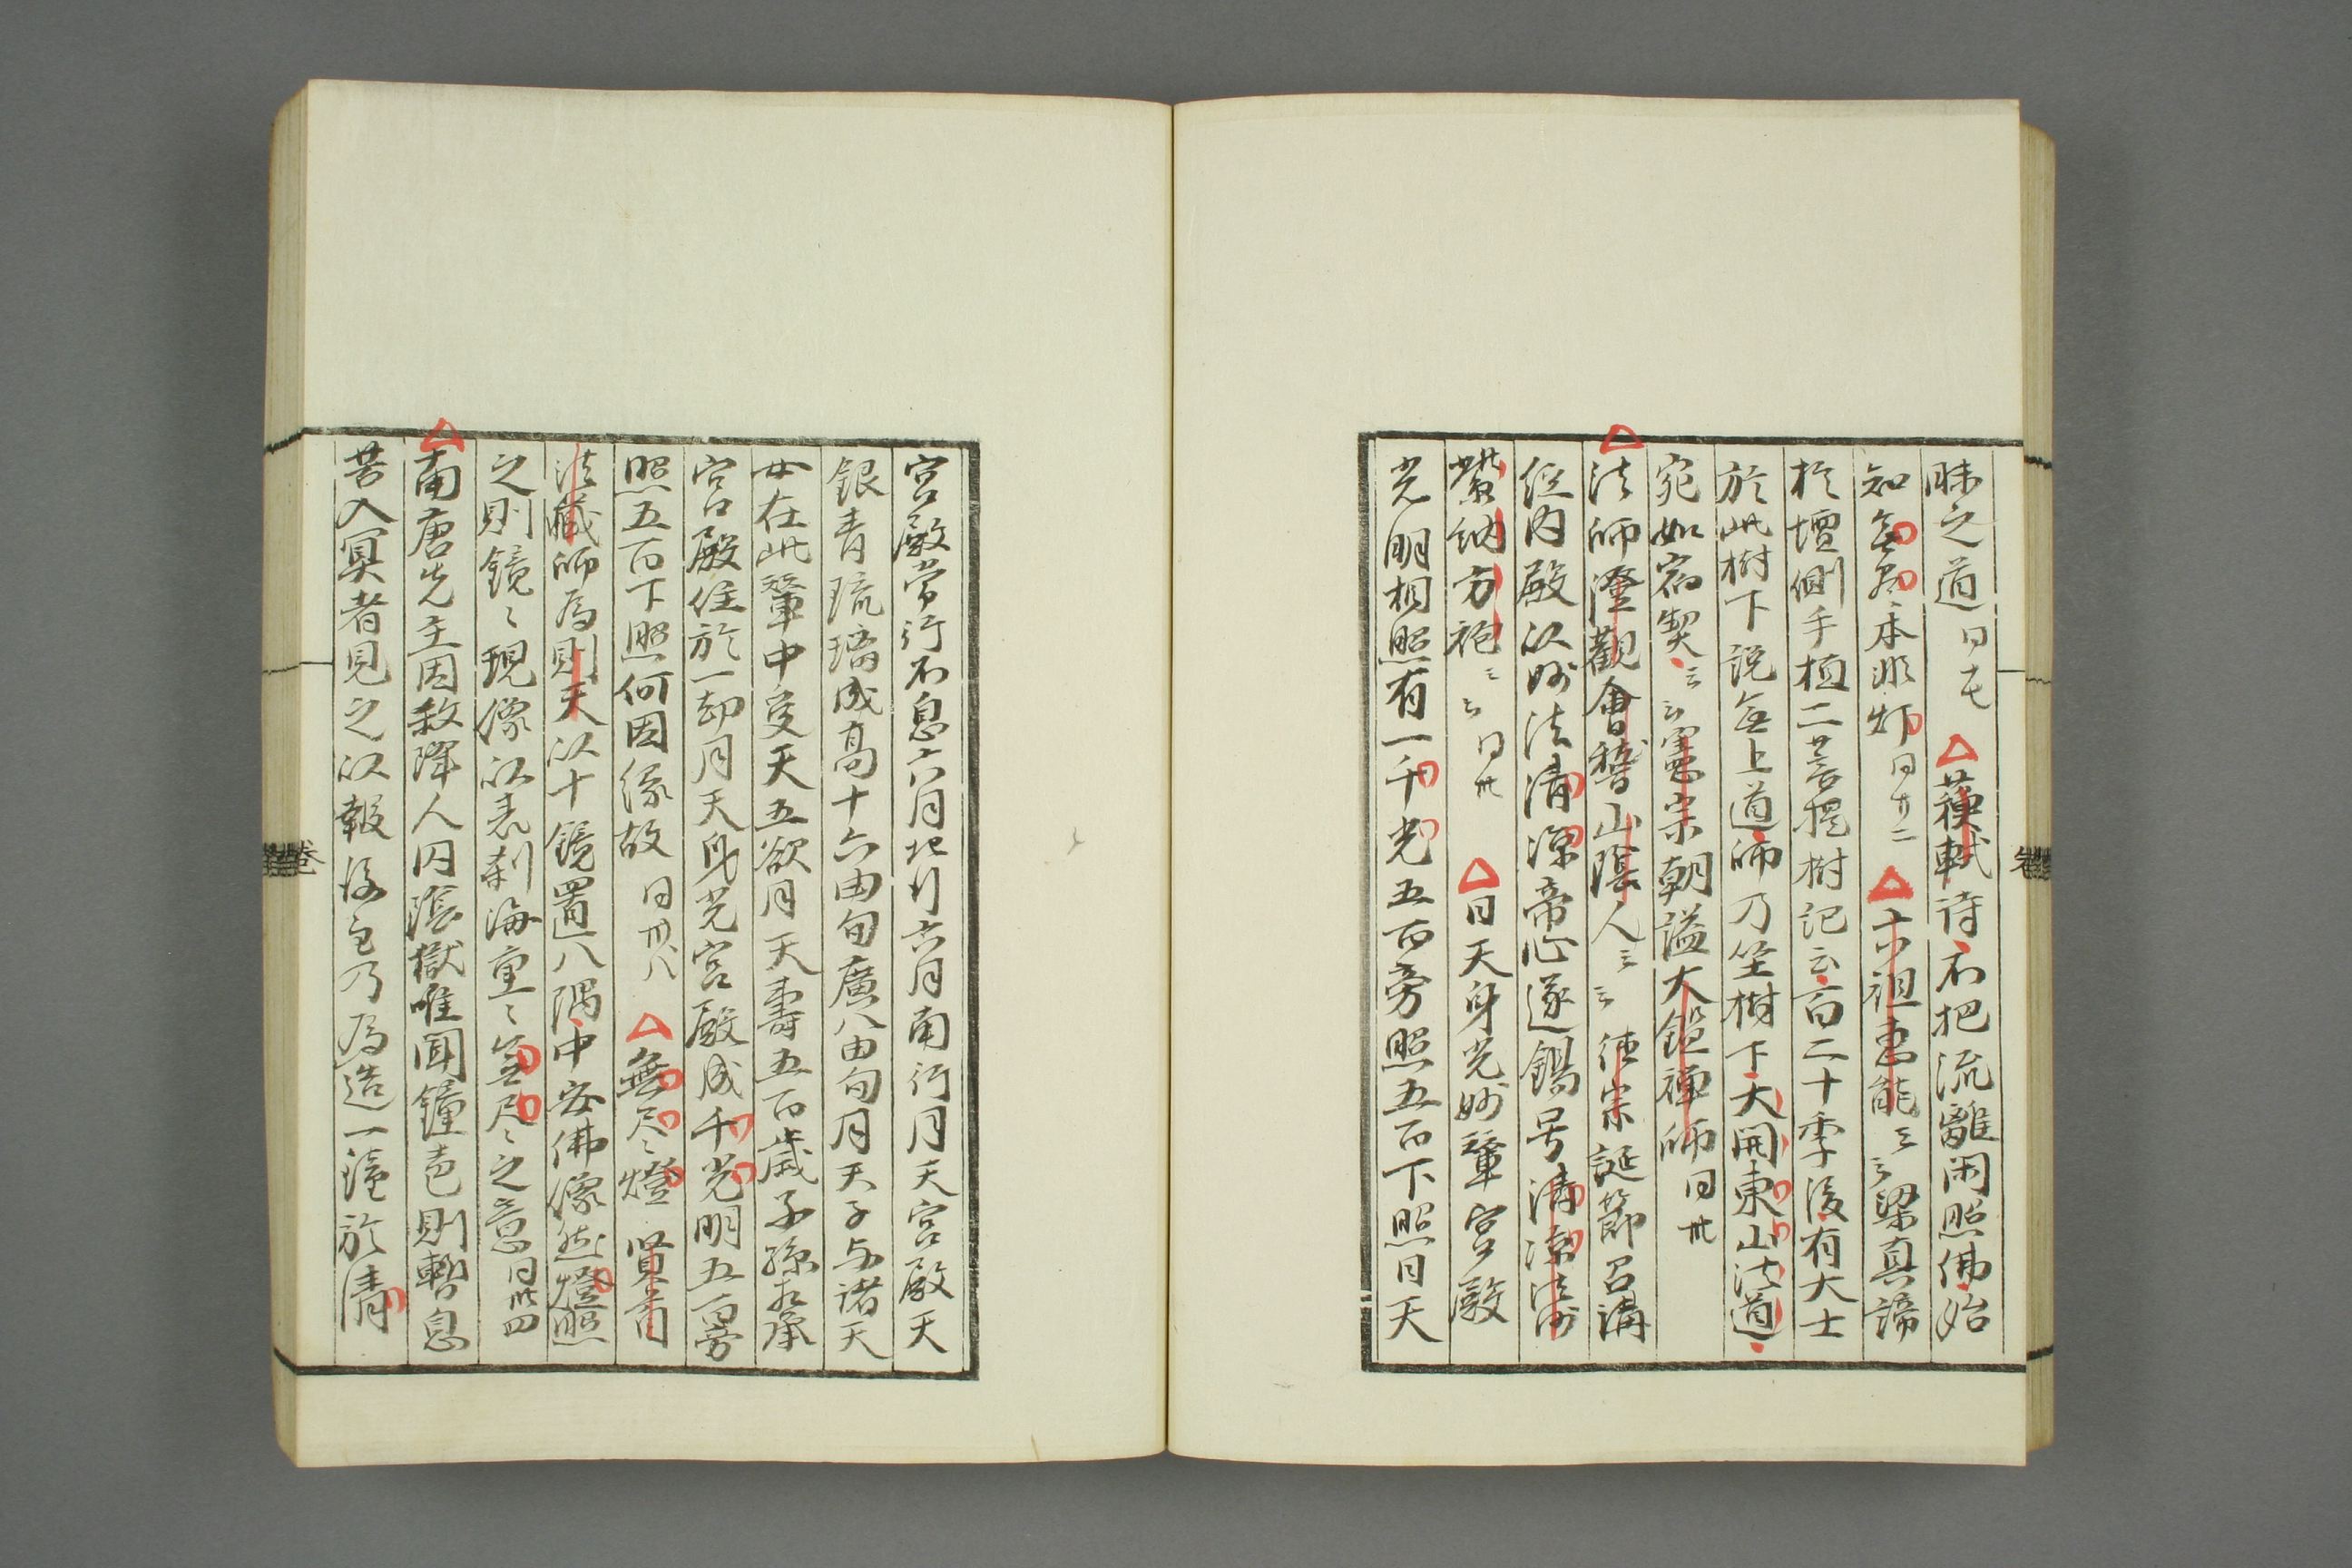 昧之道 同七 △蘓軾詩不把流離閑照佛始
知無尽本非灯 同廿二 △六祖惠能云云梁真諦
於壇側手植二菩提樹記云百二十季後有大士
於此樹下説無上道師乃坐樹下大開東山法道
宛如宿契云云憲宗朝謚大鑑禅師 同卅
△法師澄觀會稽山陰人云云徳宗誕節召講
經内殿以妙法清凉帝心遂錫号清凉法師
紫納方袍云云 同卅 △日天身光妙輦宮殿
光明相照有一千光五百旁照五百下照日天
宮殿常行不息六月北行六月南行月天宮殿天
銀青琉璃成高十六由旬廣八由旬月天子与諸天
女在此輦中受天五欲月天壽五百歳子孫相承
宮殿住於一劫月天身光宮殿成千光明五百旁
照五百下照何因縁故 同卅八 △無尽ミ燈 賢首
法藏師為則天以十鏡置八隅中安佛像然燈照
之則鏡ミ現像以表刹海重ミ無尽ミ之意 同卅四
△南唐先主因殺降人囚陰獄唯聞鐘声則暫息
苦入冥者見之以報後主乃為造一鐘於清
卷
卷